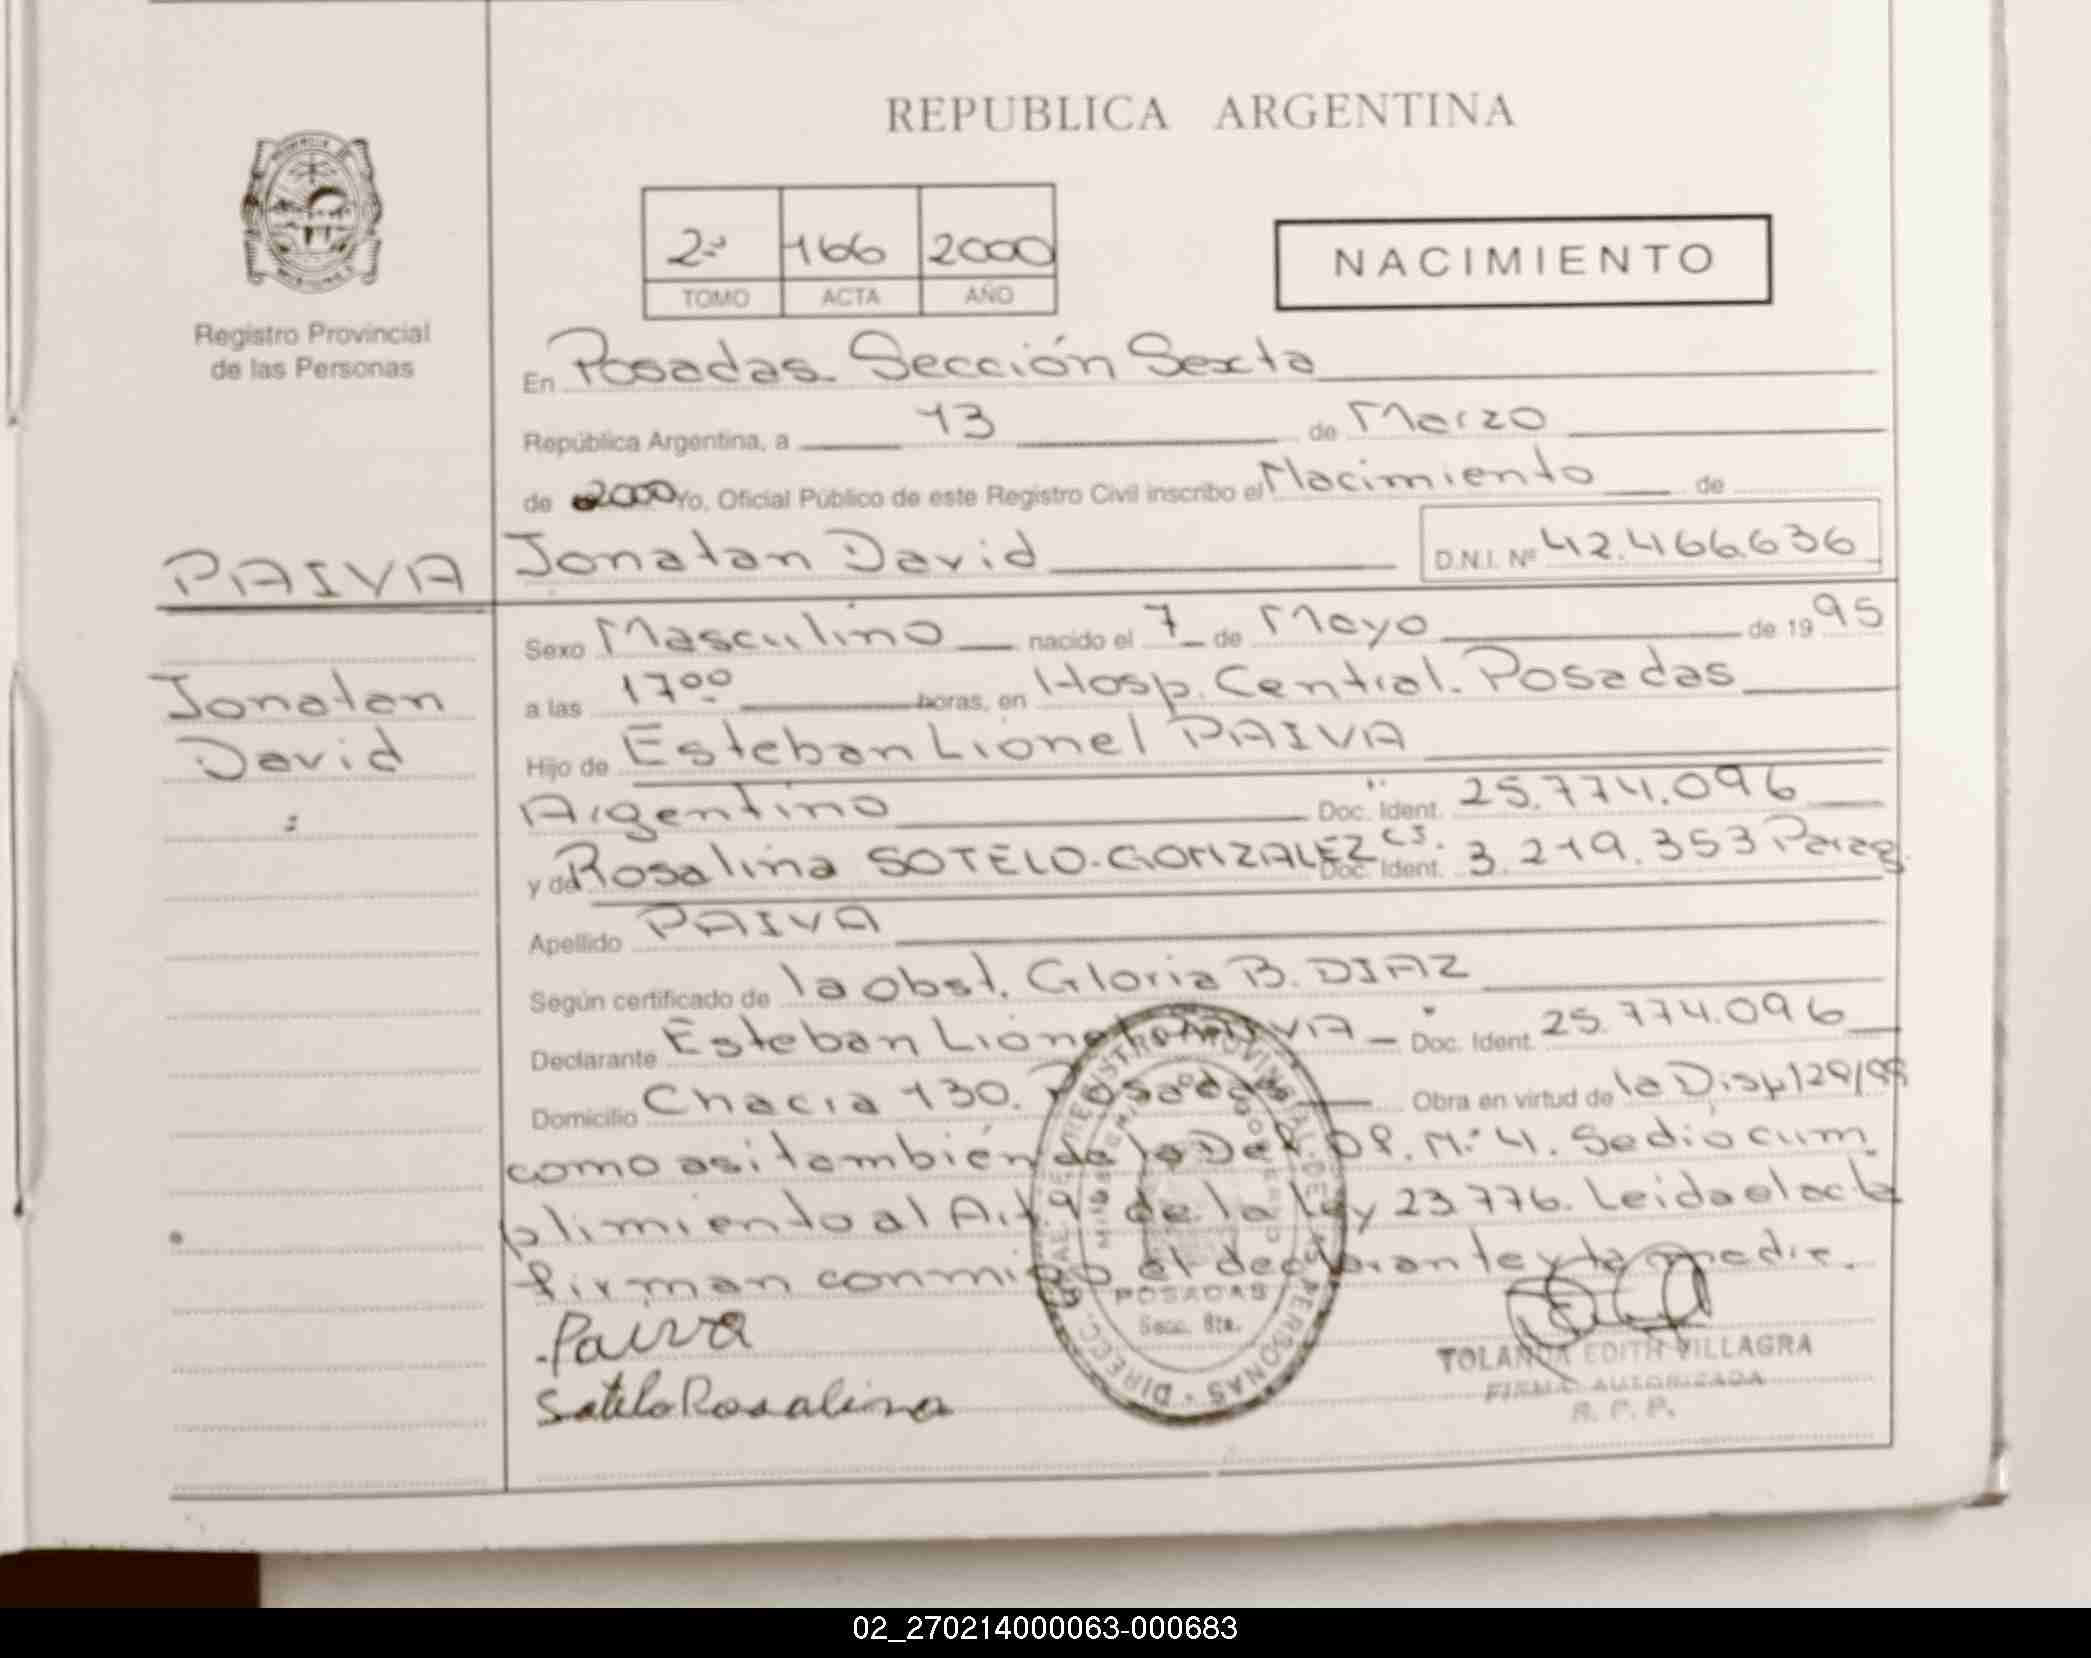 REPUBLICA ARGENTINA
Registro Provincial
de las Personas
2º 166 2000
TOMO ACTA AÑO
NACIMIENTO
En Posadas. Sección Sexta
República Argentina, a 13 de Marzo
de 2000 Yo, Oficial Público de este Registro Civil inscribo el Nacimiento de
PAIVA Jonatan David D.N.I. Nº 42.466.636
Jonatan
David
Sexo Masculino nacido el 7 de Mayo de 1995
a las 17 00 horas, en Hosp. Central. Posadas
Hijo de Esteban Lionel PAIVA
Argentino Doc. Ident. 25.774.096
y de Rosalina SOTELO-GONZALEZ C.I. Doc. Ident. 3.219.353 Parag.
Apellido PAIVA
Según certificado de la obst. Gloria B. DIAZ
Declarante Esteban Lionel PAIVA Doc. Ident. 25.774.096
Domicilio Chacra 130. Posadas Obra en virtud de la Disp 129/99
como asi también de la De OP. N:º 4. Se dió cum
plimiento al Art. 9º de la Ley 23.776. Leida el acta
firman conmigo el declarante y la madre.
Paiva
Sotelo Rosalina
DIRECC. GRAL. DEL REGISTRO PROVINCIAL DE LAS PERSONAS
MISIONES
POSADAS
Secc. 6ta.
YOLANDA EDITH VILLAGRA
FIRMA AUTORIZADA
R. P. P.
02_270214000063-000683